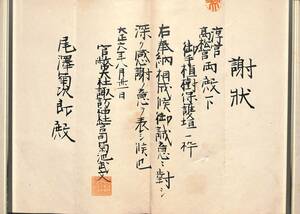 謝状
淳宮
高松宮 両殿下
御手植樹保護垣一件
右奉納相成候御誠意ニ對シ
深ク感謝ノ意ヲ表シ候也
大正六年八月廿一日
官幣大社諏訪神社宮司菊池武文
尾澤菊次郎殿